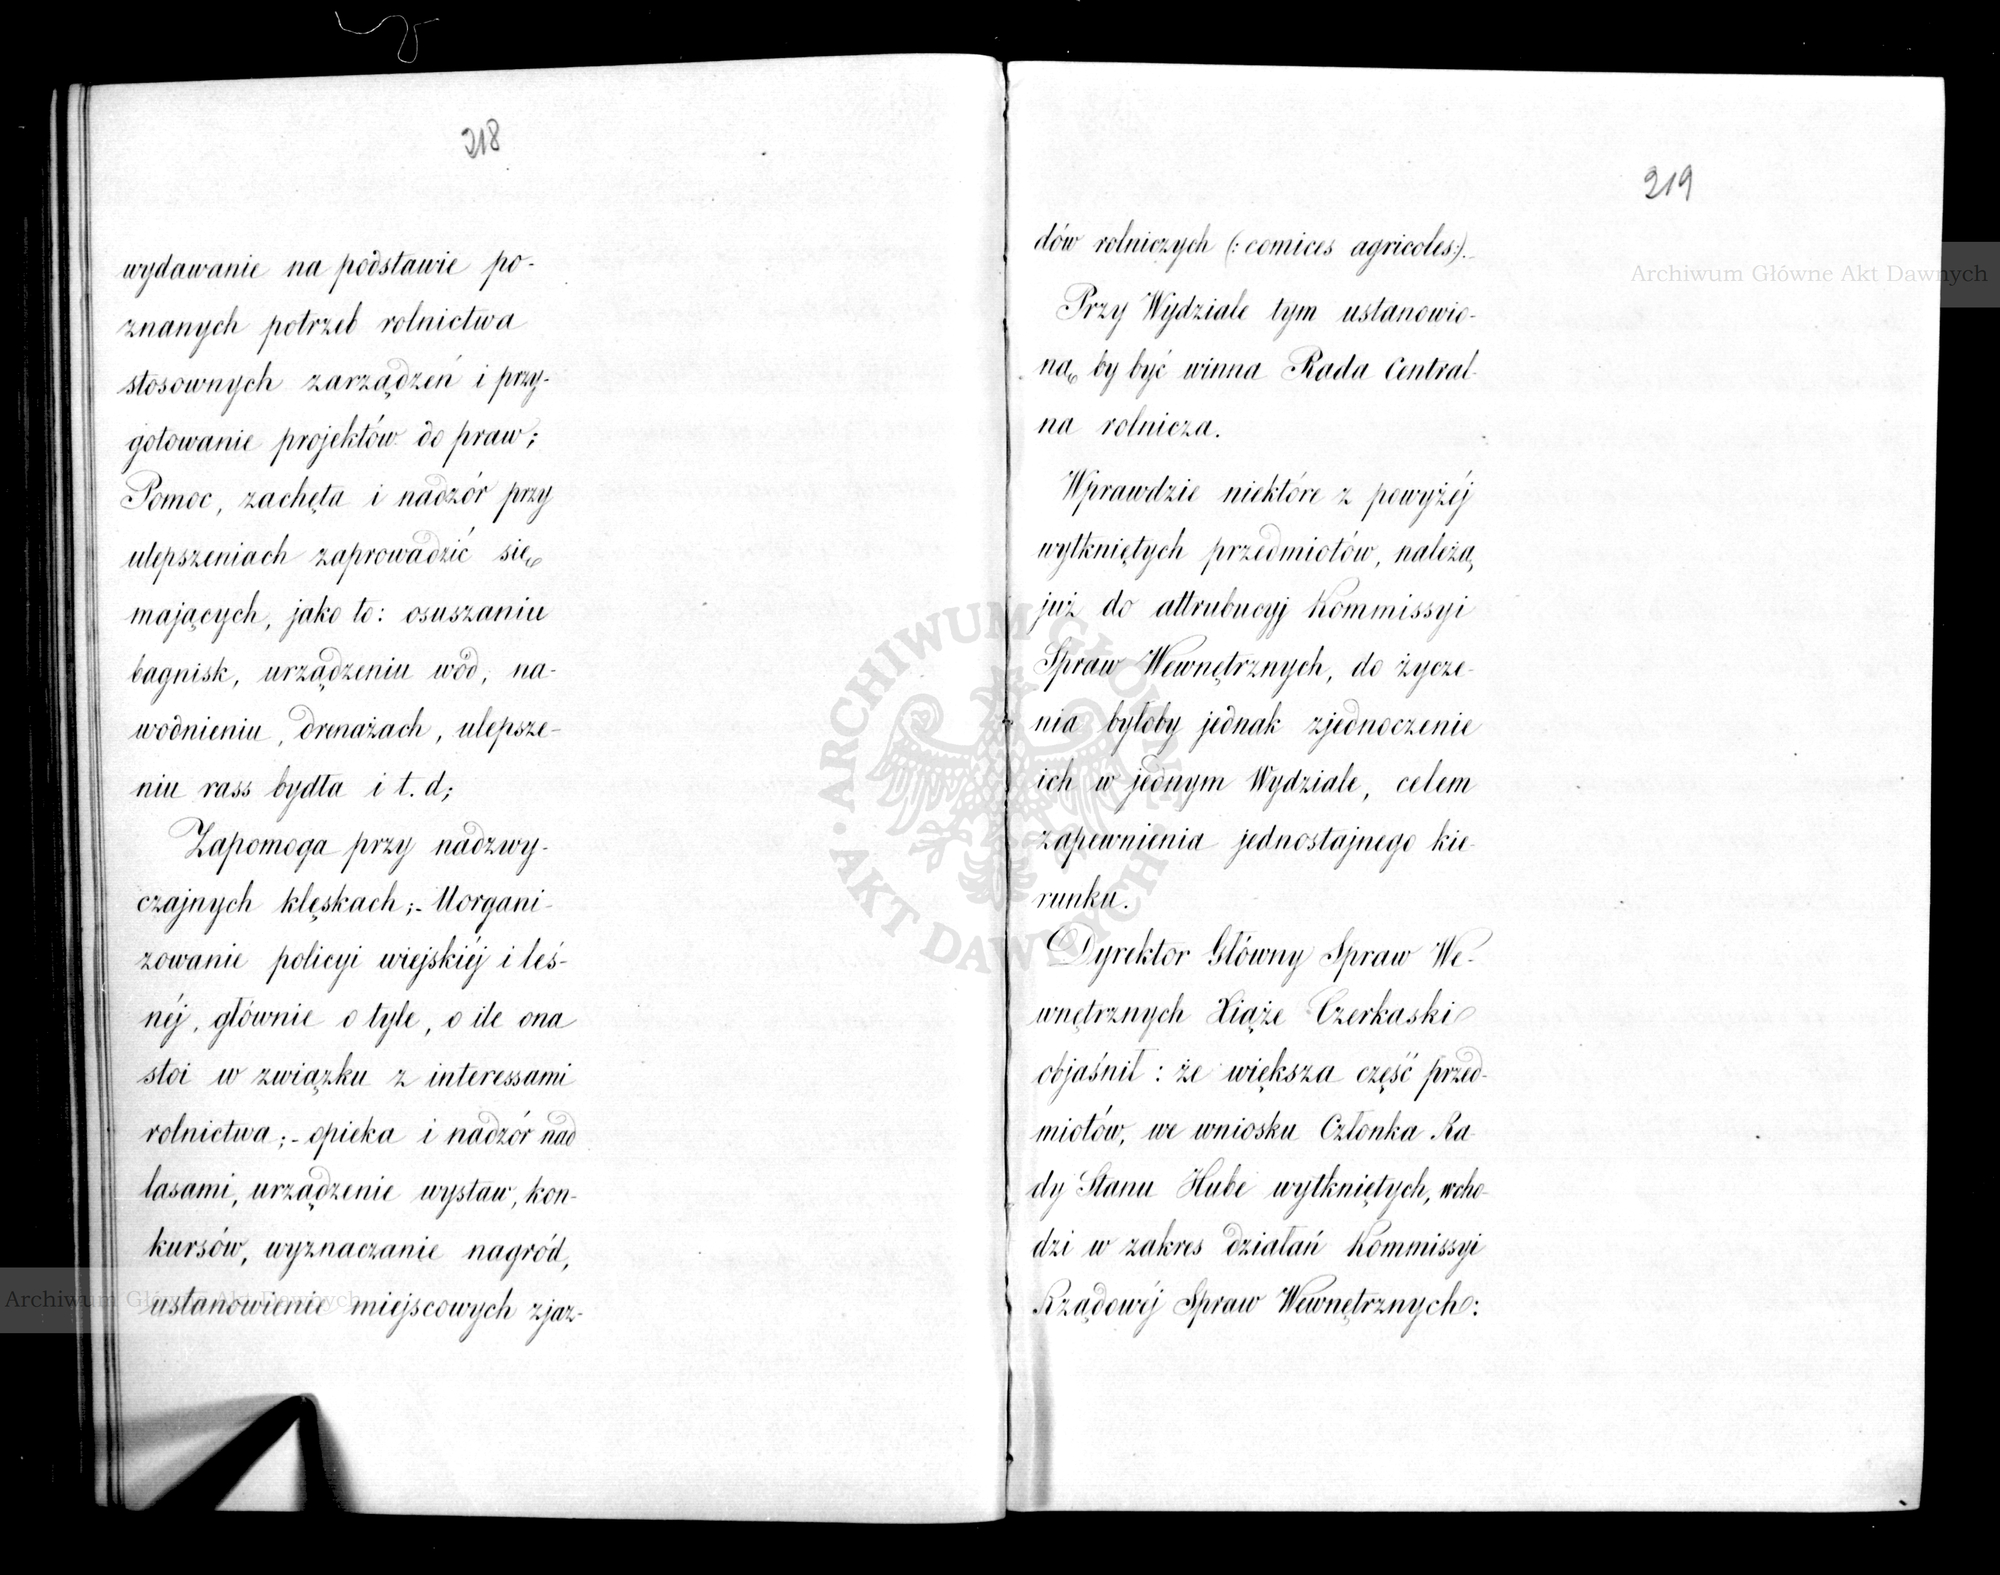 218
wydawanie na podstawie po-
znanych potrzeb rolnictwa
stosownych zarządzeń i przy-
gotowanie projektów do praw;
Pomoc, zachęta i nadzór przy
ulepszeniach zaprowadzić się
mających, jako to: osuszaniu
bagnisk, urządzeniu wód, na-
wodnieniu, drenażach, ulepsze-
niu rass bydła i t. d;
Zapomoga przy nadzwy-
czajnych klęskach;- Uorgani-
zowanie policyi wiejskiéj i leś-
néj, głównie o tyle, o ile ona
stoi w związku z interessami
rolnictwa;- opieka i nadzór nad
lasami, urządzenie wystaw, kon-
kursów, wyznaczanie nagród,
ustanowienie miejscowych zjaz-
219
dów rolniczych (:comices agricoles:).
Przy Wydziale tym ustanowio-
ną by być winna Rada Central-
na rolnicza.
Wprawdzie niektóre z powyżéj
wytkniętych przedmiotów, należą
już do attrubucyj Kommissyi
Spraw Wewnętrznych, do życze-
nia byłoby jednak zjednoczenie
ich w jednym Wydziale, celem
zapewnienia jednostajnego kie-
runku.
Dyrektor Główny Spraw We-
wnętrznych Xiąże Czerkaski
objaśnił: że większa część przed-
miotów, we wniosku Członka Ra-
dy Stanu Hube wytkniętych, wcho-
dzi w zakres działań Kommissyi
Rządowéj Spraw Wewnętrznych:
Archiwum Główne Akt Dawnych
Archiwum Główne Akt Dawnych
ARCHIWUM GŁÓWNE
AKT DAWNYCH